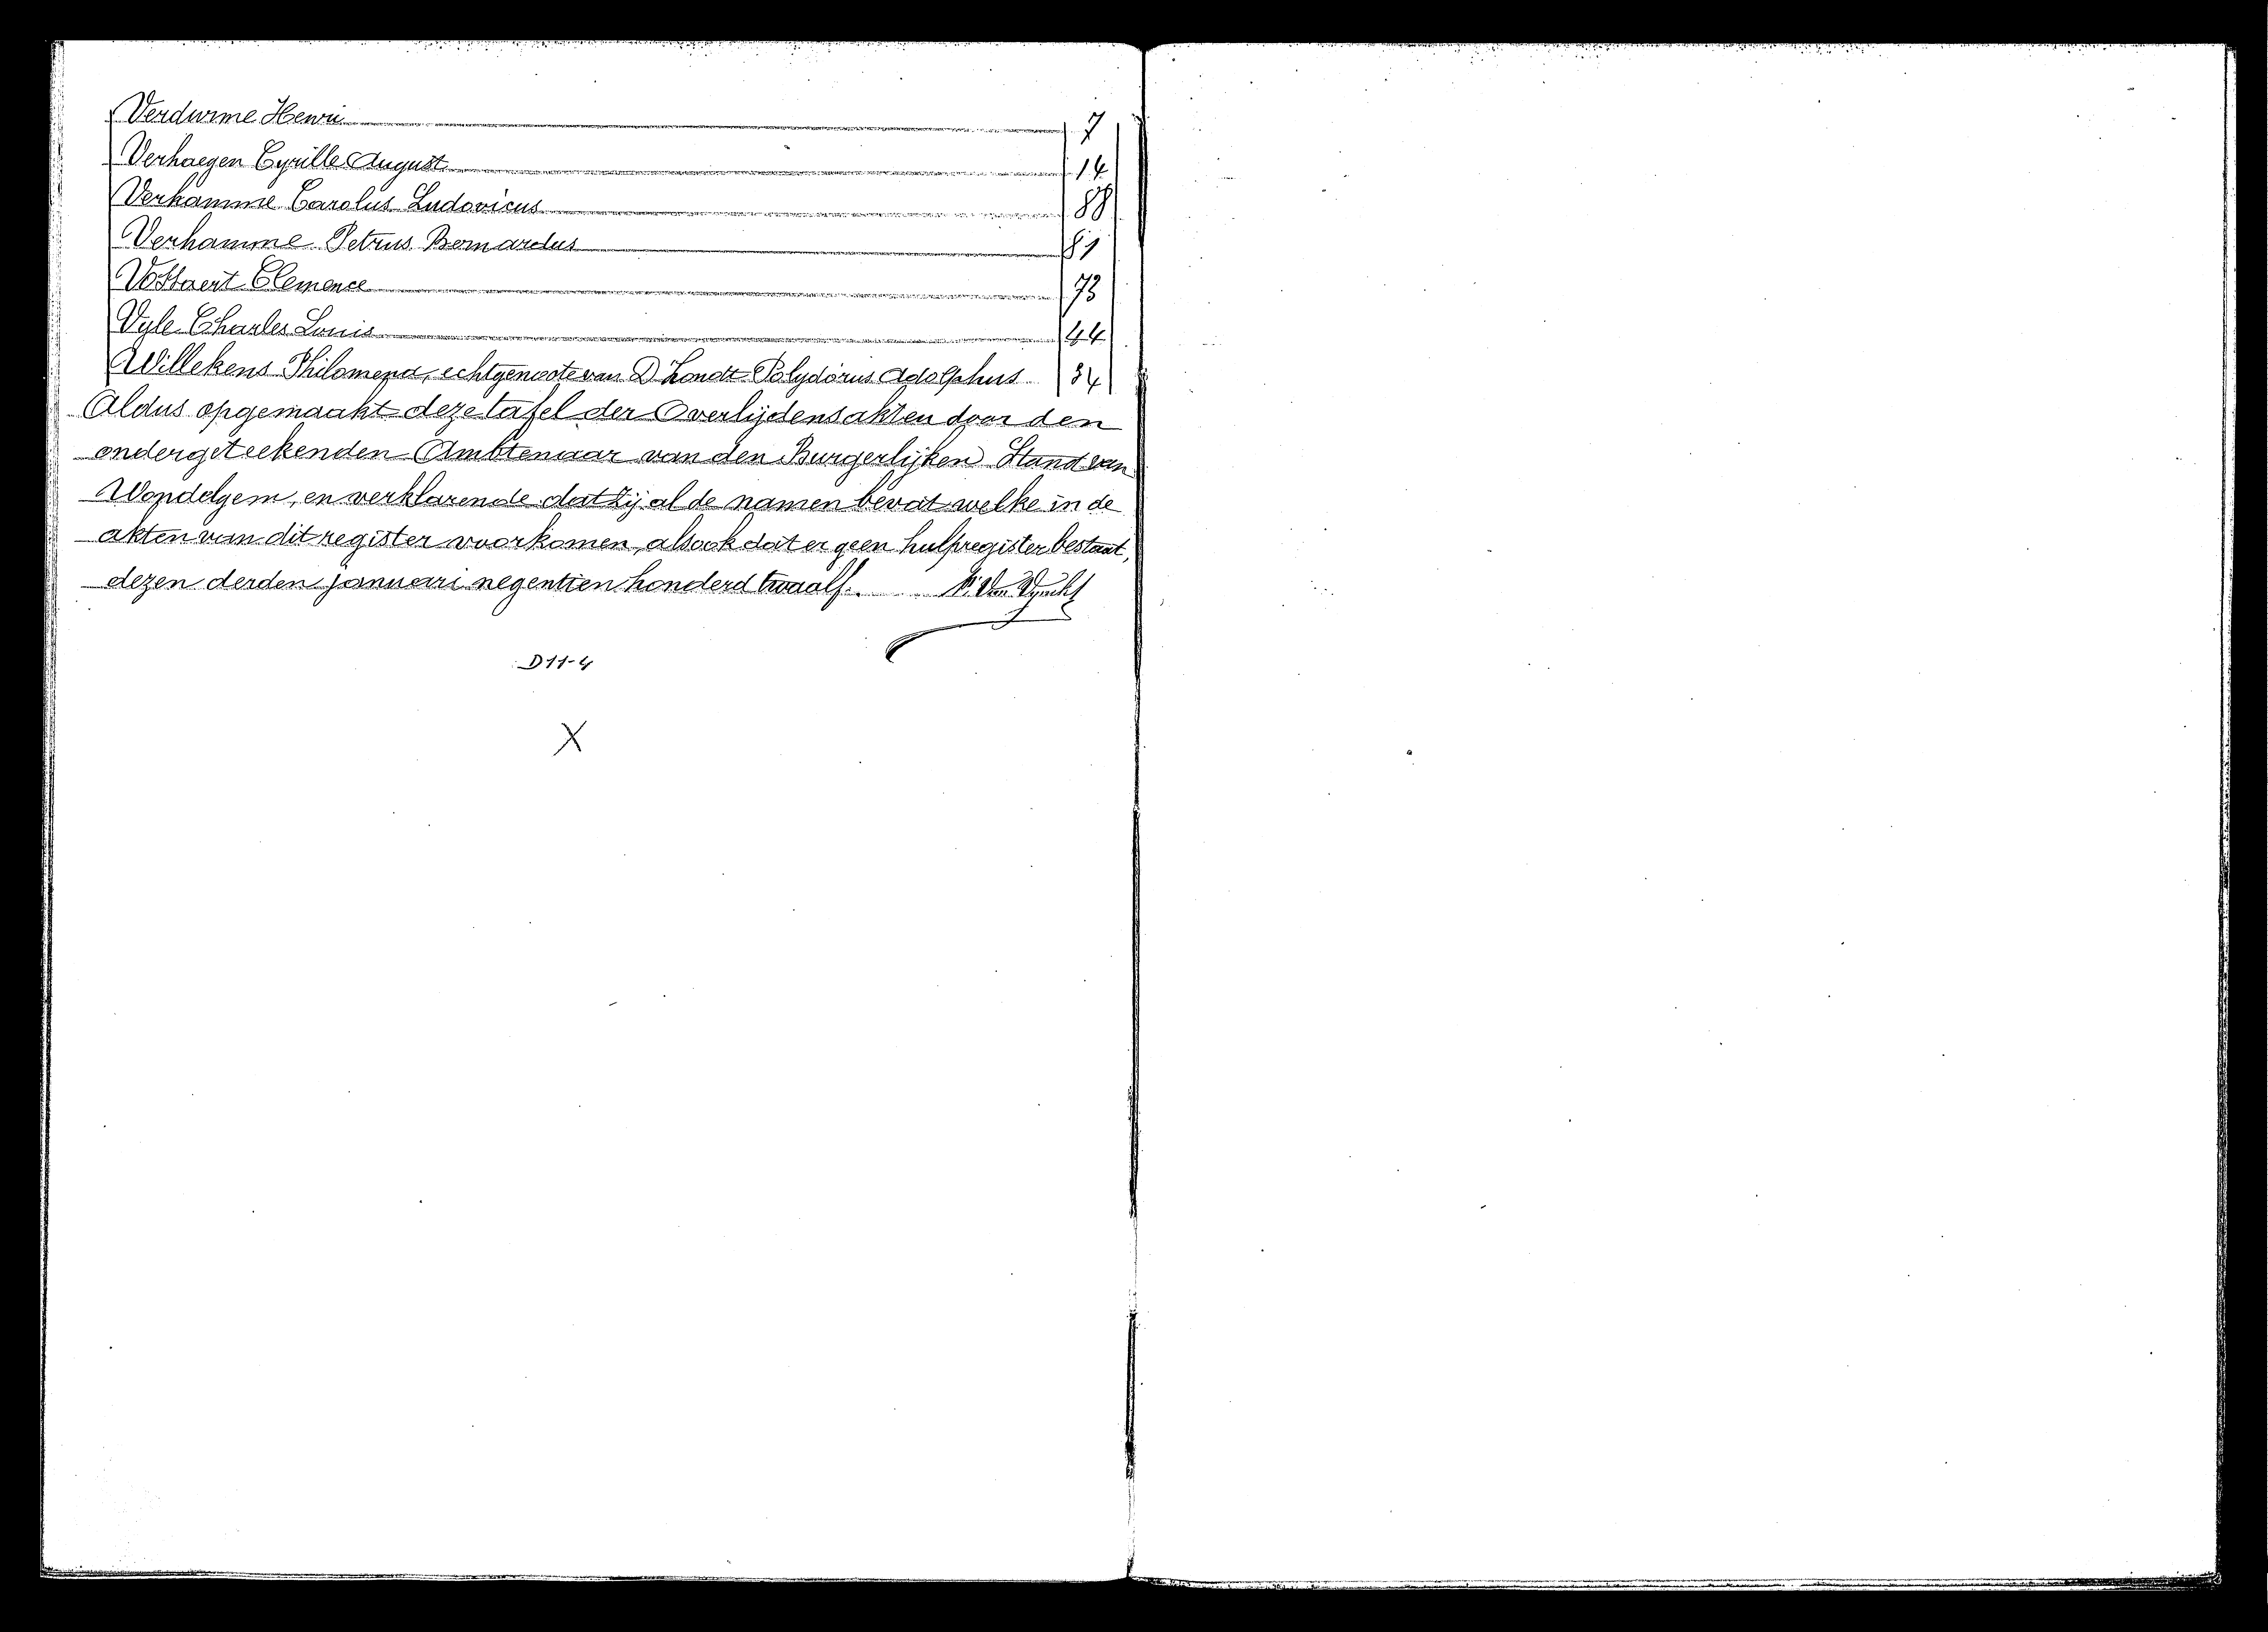 Verdurme Henri 7
Verhaegen Cyrille August 14
Verhamme Carolus Ludovicus 88
Verhamme Petrus Bernardus 81
Vottaert Clemence 73
Vyle Charles Louis 44
Willekens Philomena, echtgenoote van D'hondt Polydorus Adolphus 34
Aldus opgemaakt deze tafel der Overlijdensakten door den
ondergeteekenden Ambtenaar van den Burgerlijken Stand van
Wondelgem, en verklarende dat zij al de namen bevat welke in de
akten van dit register voorkomen, alsook dat er geen hulpregister bestaat,
dezen derden januari negentien honderd twaalf. Van
D11-4
X